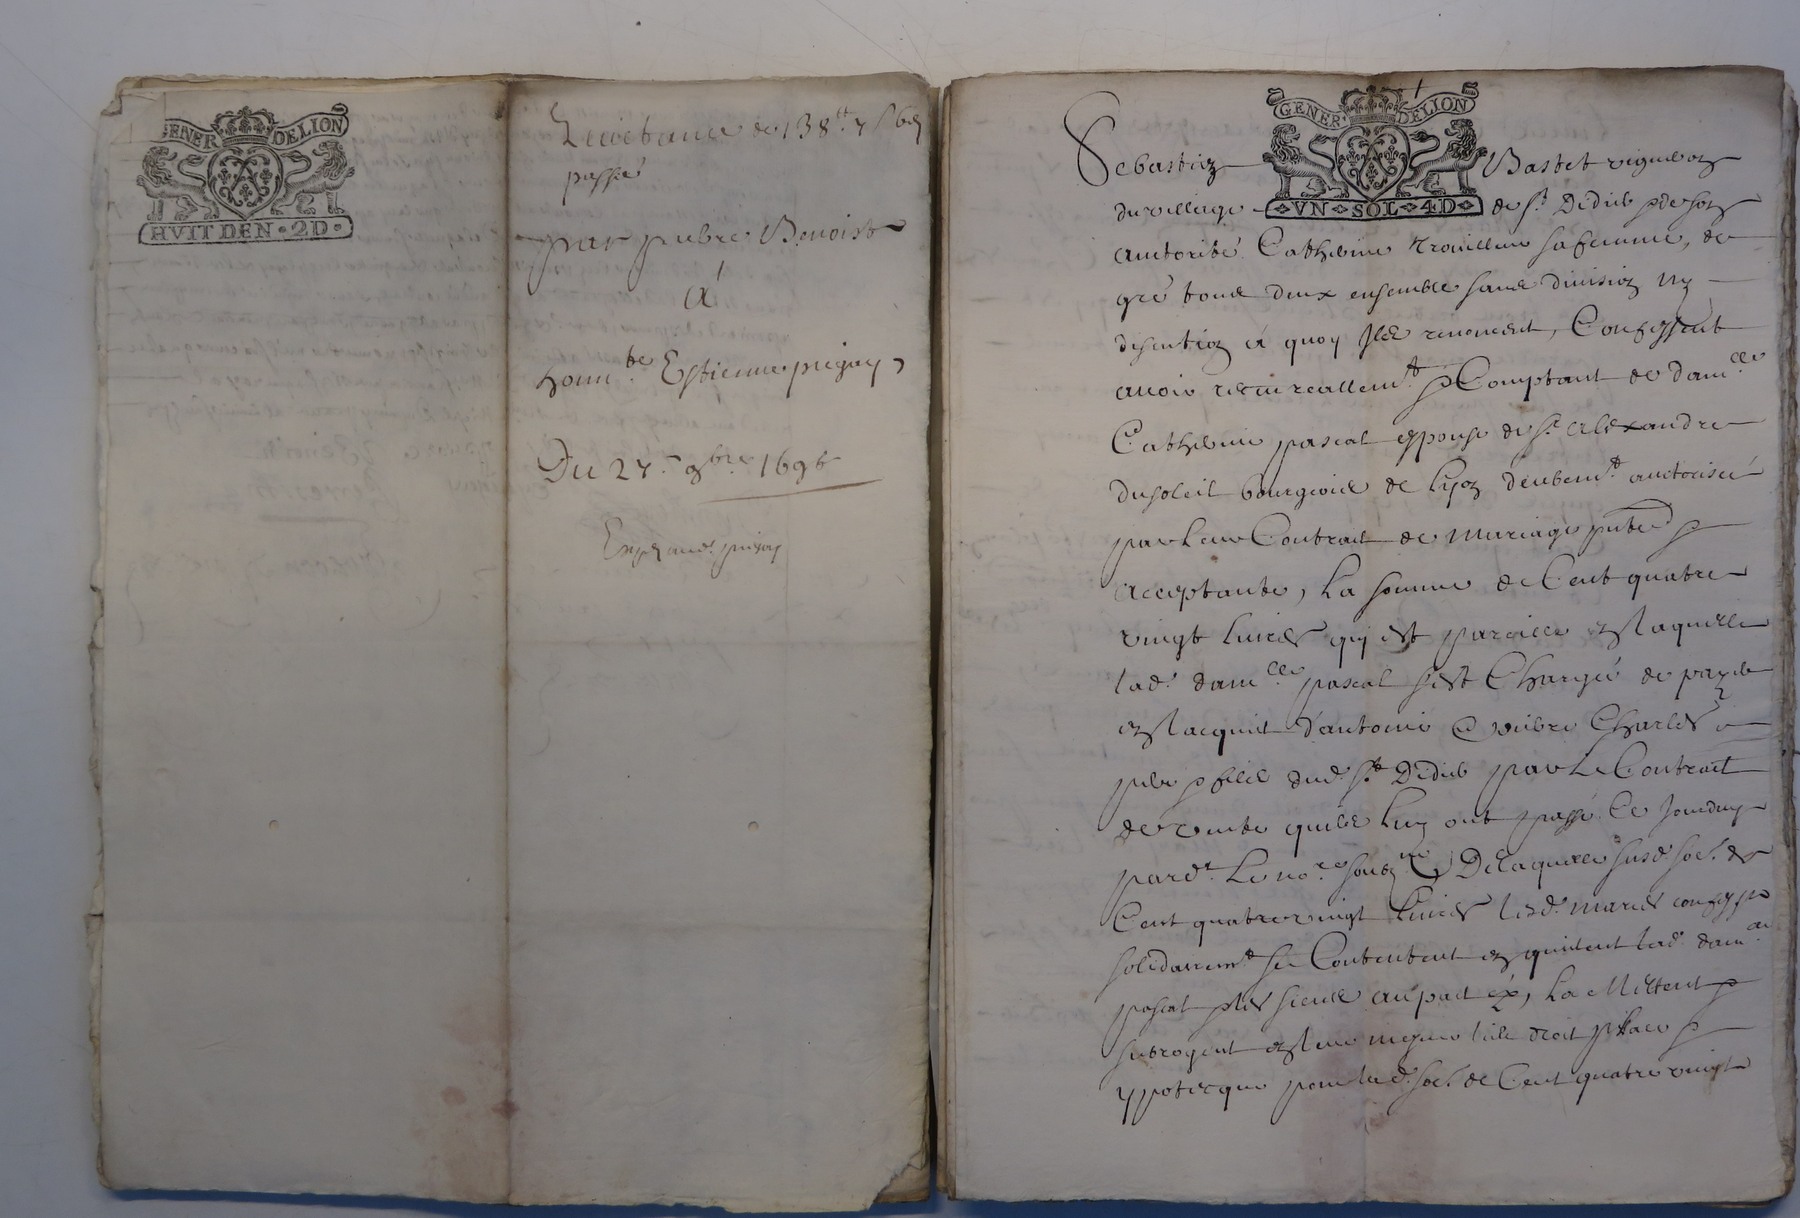 GENER DELION
HVIT DEN · 2D ·
de 138
passé
par pierre Benoist
A
honn.ble Estienne
Du 27.e 9bre 1696
GENER DELION
VN SOL 4D
Sebastien Bastet vigneron
du village de St Didier & de son
auctorité Catherine sa femme, de
gré tous deux ensemble sans division ny
discution a quoy Ilz renoncent, Confessent
avoir receu reallem.t & Comptant de dam.lle
Catherine pascal espouse de sr alexandre
dusoleil bourgeois de Lyon deubem.t auctorisée
par leur Contrait de mariage &
acceptante, La somme de Cent quatre
vingt livres qui est pareille et laquelle
lad. dam.lle pascal s'est Chargée de payer
en l'acquit d'antoine Charles
pere & filz dud. St Didier par Le Contrait
de vente quilz Luy ont passé Ce Jourdhuy
pard.t Le no.re soubz.né De laquelle susd. so.e de
Cent quatre vingt livres lesd. mariés
solidairem.t se Contentent en quittent lad. dam.lle
pascal & les siens au pact La Mettent &
subrogent en leur mesme lieu droit place &
ypotecque pour lad. so.e de Cent quatre vingt